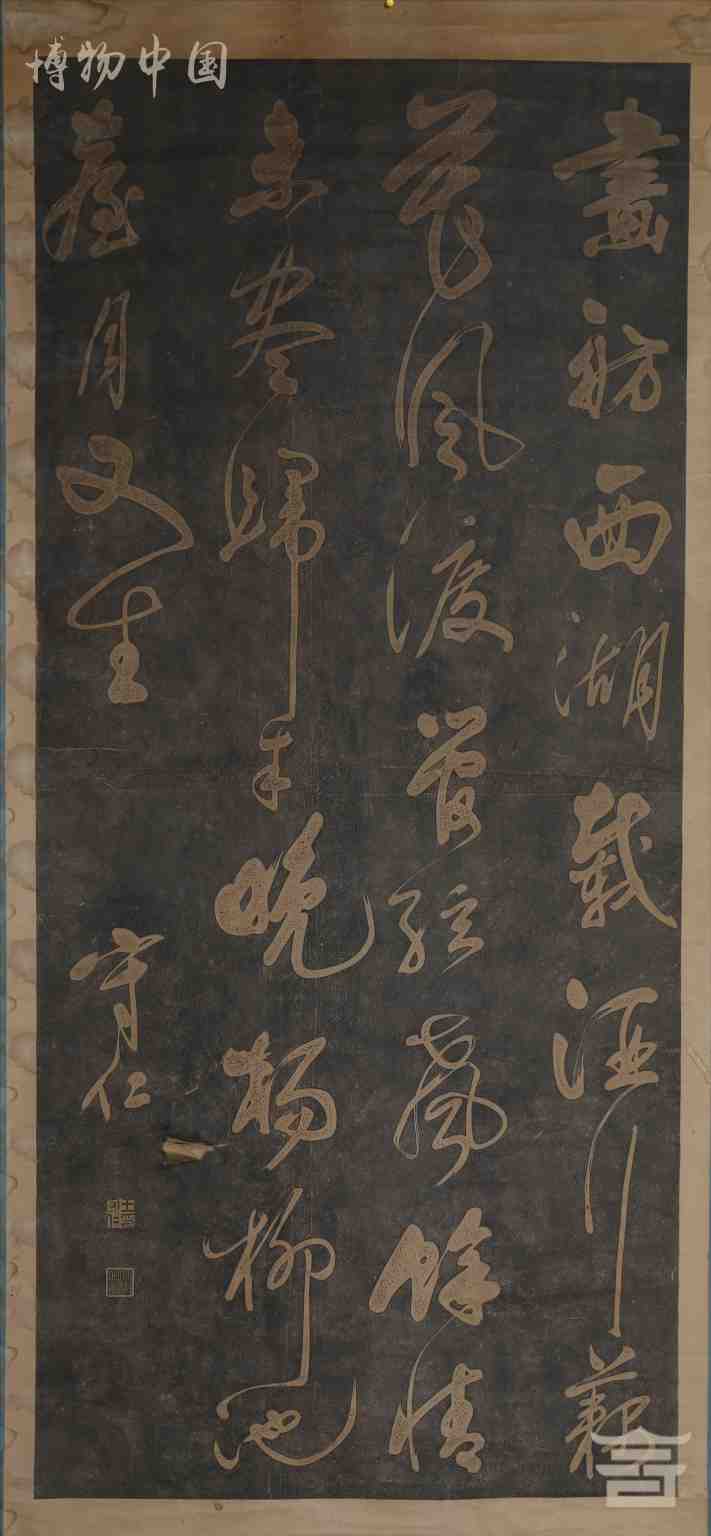 博物中国
畫舫西湖載酒行藕
花風渡管弦聲餘情
未盡歸來晚楊柳池
臺月又生
守仁